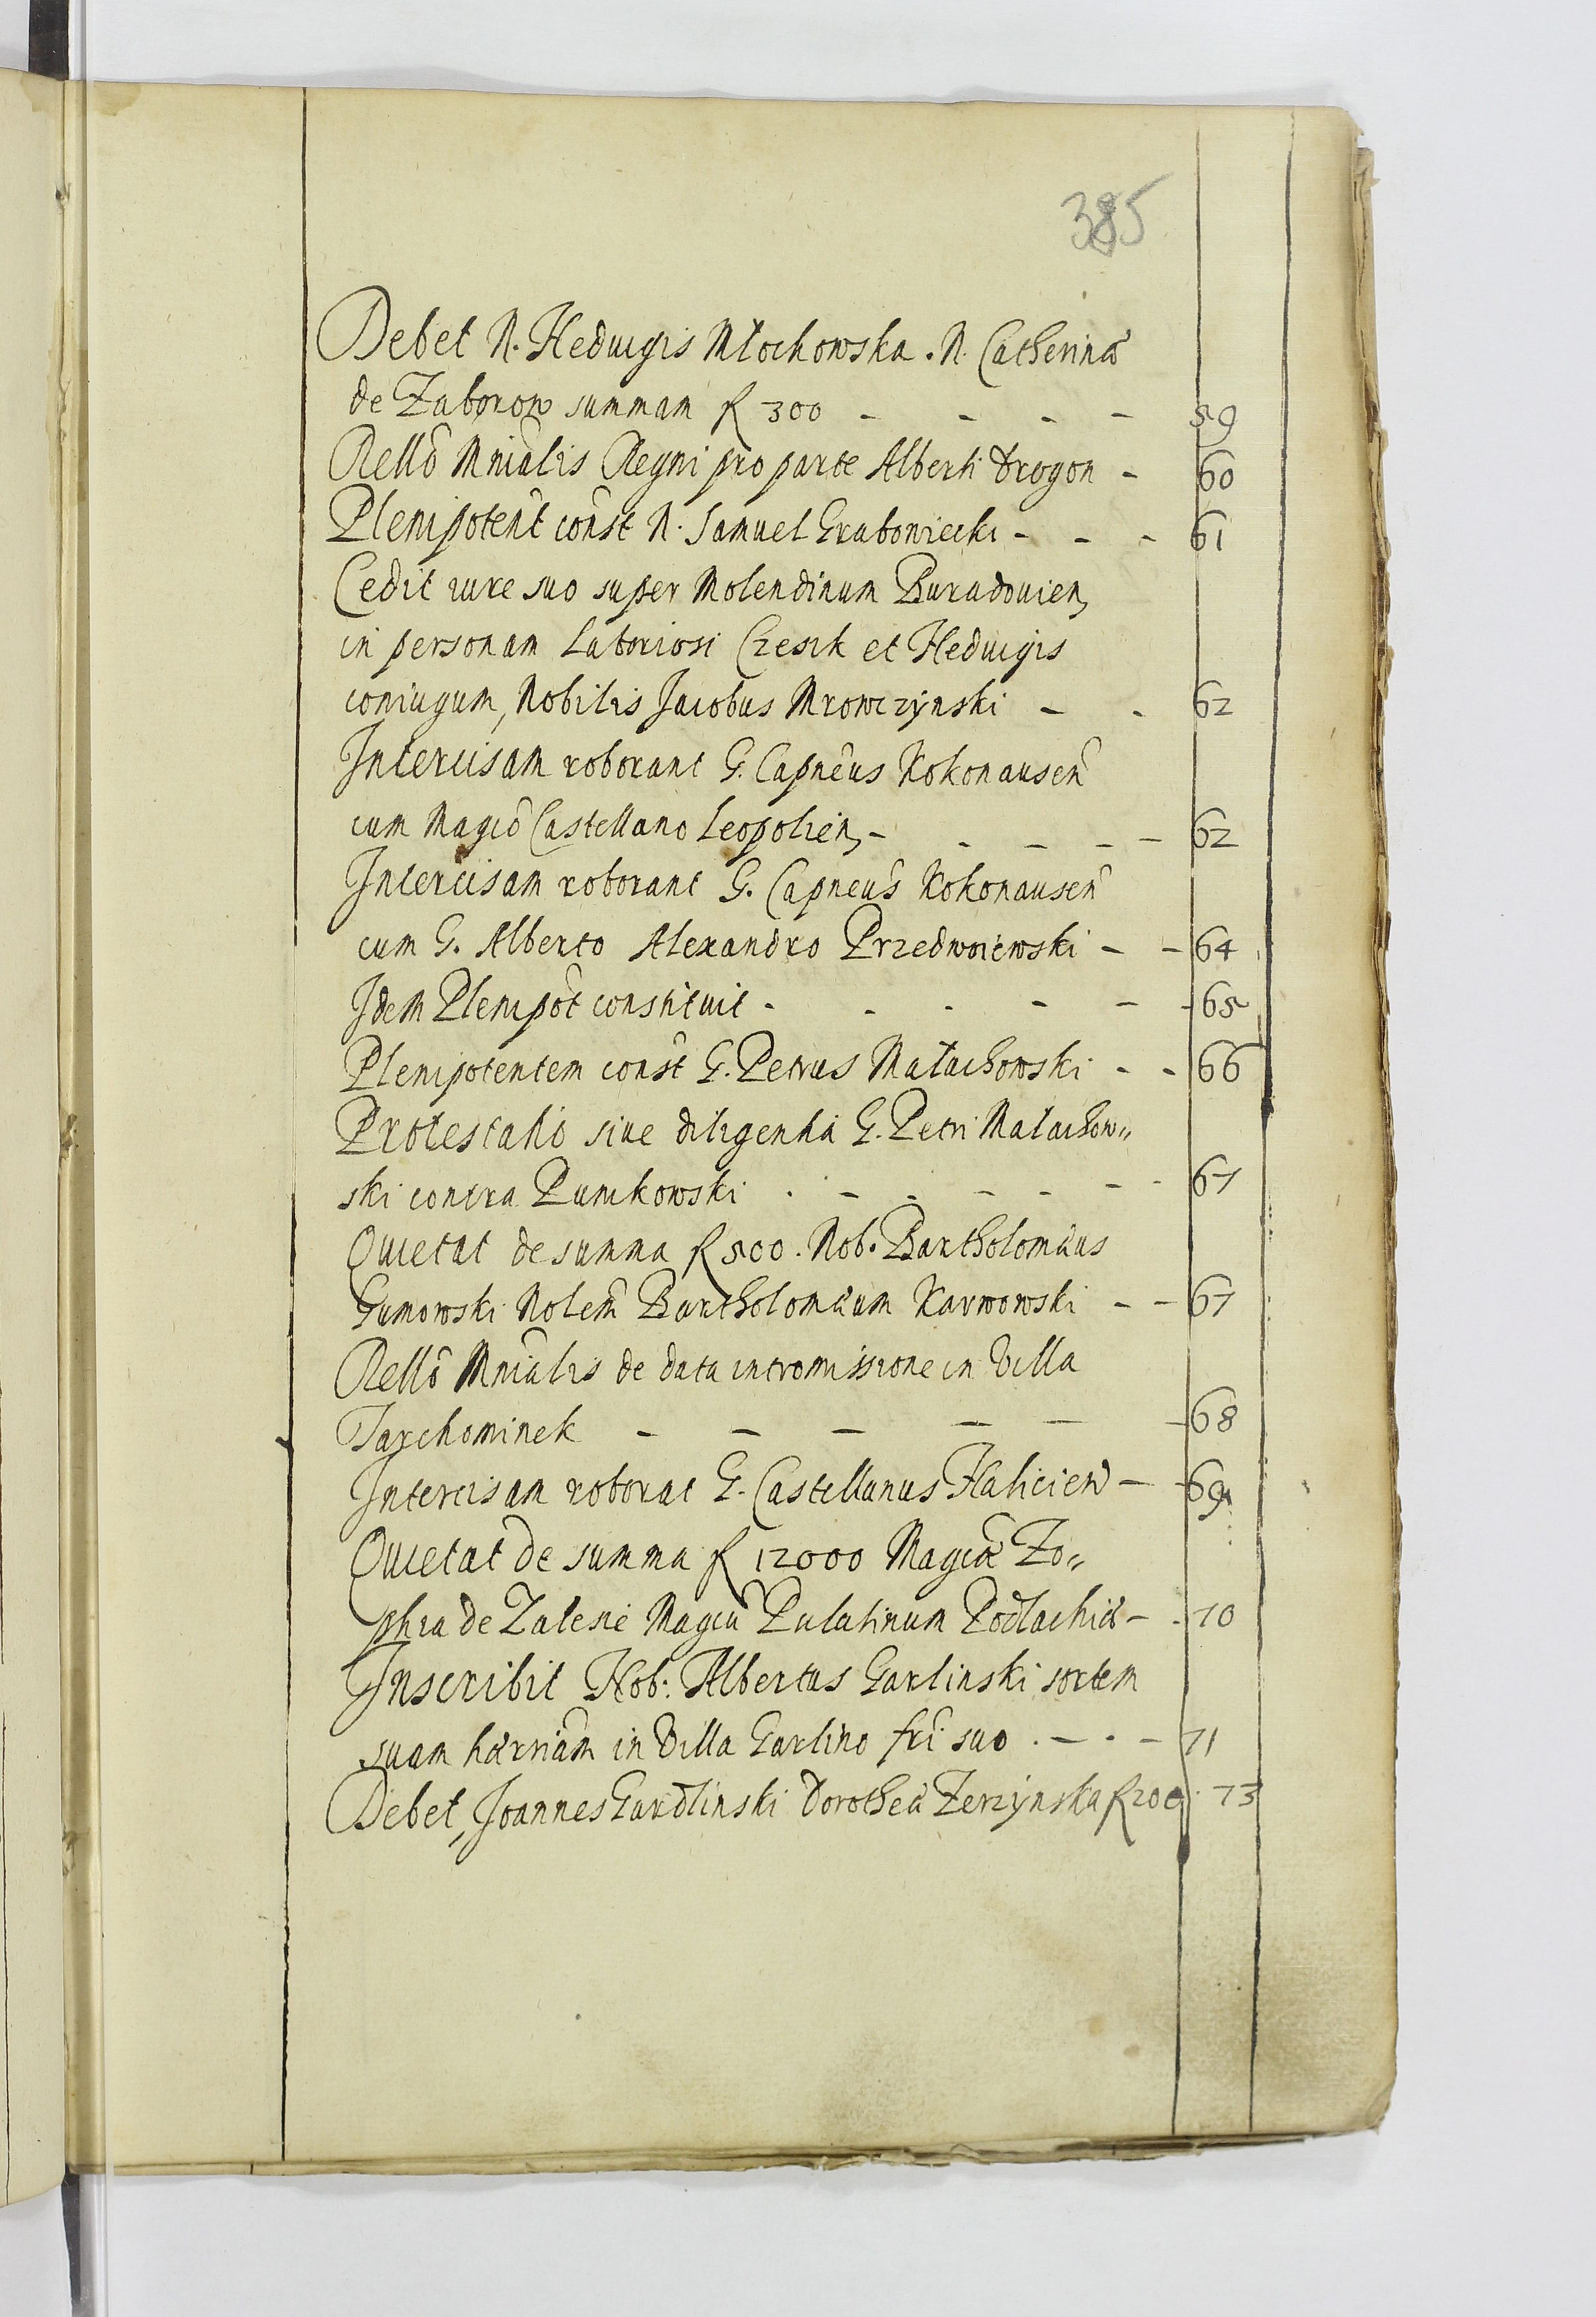 385
Debet N. Heduigis Młochowska. N. Catherinæ
de Zaborow summam fl 300 - - - - 59
Rellõ Mniãlis Regni pro parte Alberti Drogon - 60
Plenipotent̃ const̃ N. Samuel Graboniecki - - - 61
Cedit iure suo super Molendinum Buradouien,
in personam Laboriosi Czesik et Heduigis
coniugum, Nobilis Jacobus Mrowczynski - - 62
Intercisam roborant G. Capneus Kokonausen̄
cum Magcõ Castellano Leopolien, - - - - - 62
Intercisam roborant G. Capneus Kokonausen̄
cum G. Alberto Alexandro Przedwoiewski - - 64
Idem Plenipot̃ constituit - - - - - - 65
Plenipotentem const̃ G. Petrus Małachowski - - 66
Protestatio siue diligentia G. Petri Małachow„
ski contra Punikowski . - - - - - - 67
Quietat de summa fl 500. Nob. Bartholomæus
Gumowski Nolem̃ Bartholomæum Karwowski - - 67
Rellõ Mniãlis de data intromissione in Villa
Tarchominek - - - - - - 68
Intercisam roborat G. Castellanus Halicien̄ - - 69
Quietat de summa fl 12000 Magcã Zo„
phia de Zalesie Magcũ Palatinum Podlachiæ - - 70
Inscribit Nob: Albertus Garlinski sortem
suam hærñiam in Villa Garlino frĩ suo . - . - 71
Debet, Joannes Gardlinski Dorotheæ Zerzynska fl 200. 73